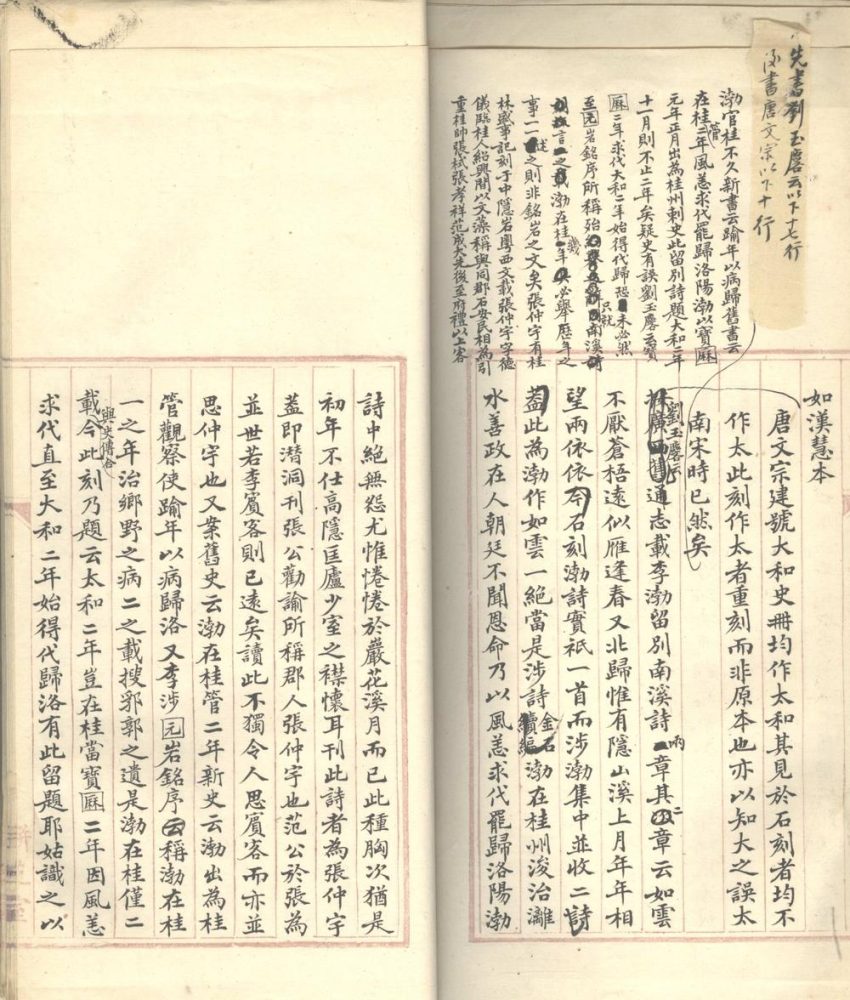 先書劉玉麐云以下十七行
後書唐文宗以下十行
渤官桂不久新書云踰年以病歸舊書云
在桂管二年風恙求代罷歸洛陽渤以寶厤
元年正月出為桂州刺史此留別詩題大和二年
十一月則不止二年矣疑史有誤劉玉麐云寶
厤二年求代大和二年始得代歸恐未必然只就
至元岩銘序所稱殆
言之載渤在桂幾年必舉歷年之
事一一述之則非銘岩之文矣張仲宇有桂
林盛事記刻于中隱岩粵西文載張仲宇字德
儀臨桂人紹興間以文藻稱與同郡石安民相為引
重桂帥張栻張孝祥范成大先後至府禮以上客
如漢慧本
唐文宗建號大和史冊均作太和其見於石刻者均不
作太此刻作太者重刻而非原本也亦以知大之誤太
南宋時已然矣
劉玉麐云
通志載李渤留別南溪詩兩章其二章云如雲
不厭蒼梧遠似雁逢春又北歸惟有隱山溪上月年年相
望兩依依今石刻渤詩實祇一首而涉渤集中並收二詩
蓋此為渤作如雲一絕當是涉詩金石續編渤在桂州浚治灕
水善政在人朝廷不聞恩命乃以風恙求代罷歸洛陽渤
詩中絕無怨尤惟惓惓於巖花溪月而已此種胸次猶是
初年不仕高隱匡廬少室之襟懷耳刊此詩者為張仲宇
蓋即潛洞刊張公勸諭所稱郡人張仲宇也范公於張為
並世若李賓客則已遠矣讀此不獨令人思賓客而亦並
思仲宇也又案舊史云渤在桂管二年新史云渤出為桂
管觀察使踰年以病歸洛又李涉元岩銘序云稱渤在桂
一之年治鄉野之病二之載搜郛郭之遺是渤在桂僅二
載與史傳合今此刻乃題云太和二年豈在桂當寶厤二年因風恙
求代直至大和二年始得代歸洛有此留題耶姑識之以